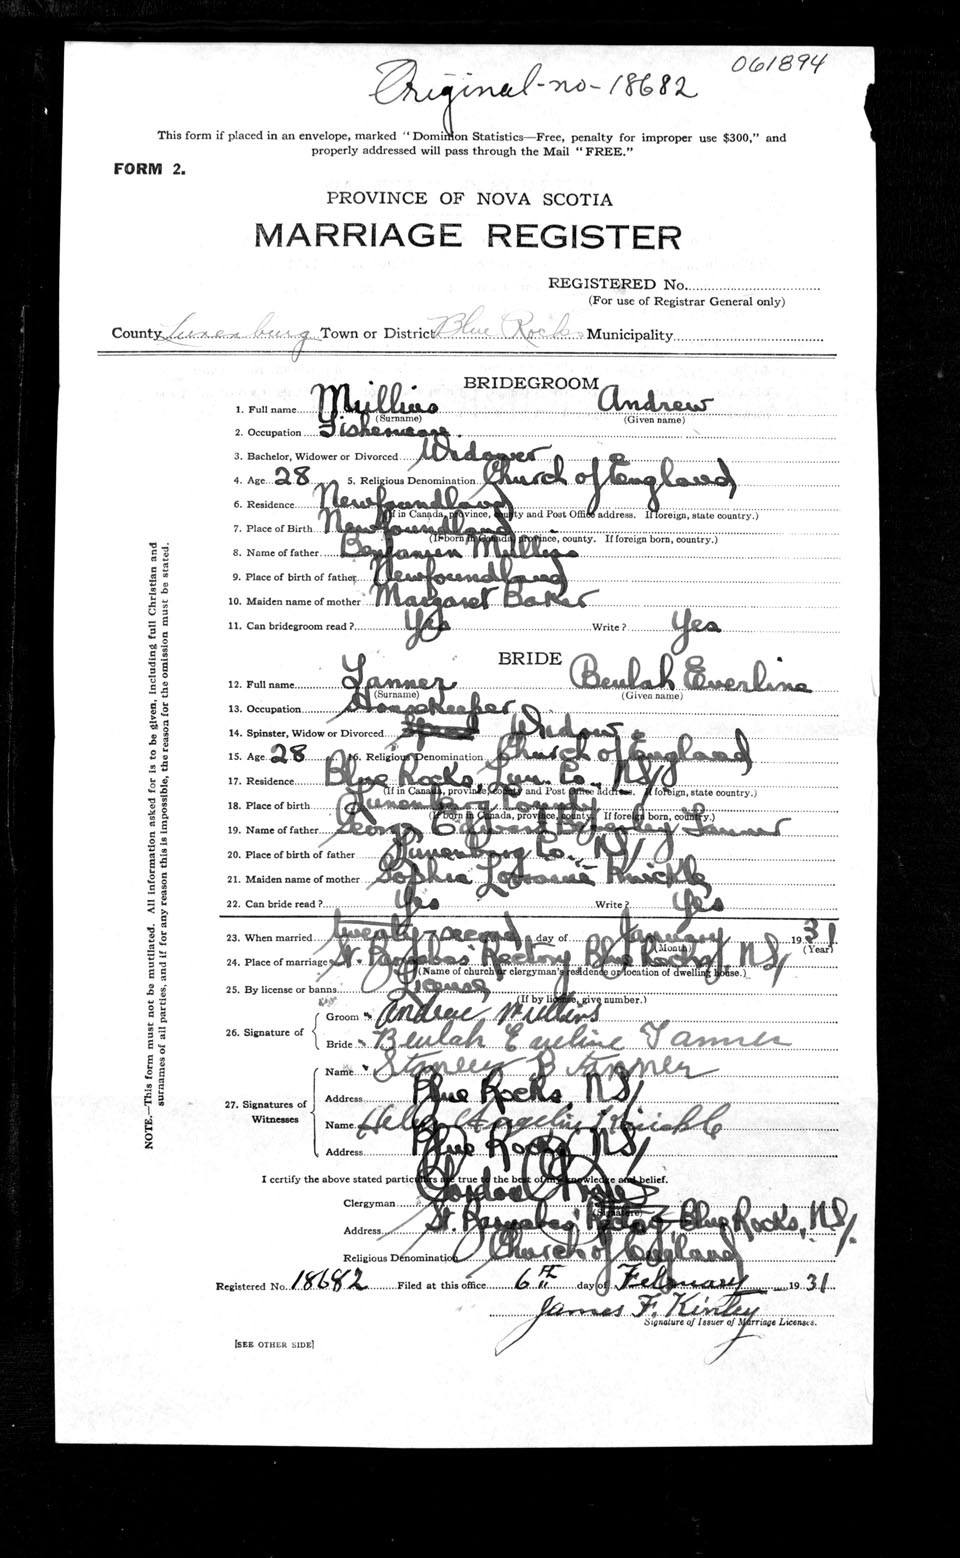 061894
Original-no-18682
This form if placed in an envelope, marked "Dominion Statistics—Free, penalty for improper use $300," and
properly addressed will pass through the Mail "FREE."
FORM 2.
PROVINCE OF NOVA SCOTIA
MARRIAGE REGISTER
REGISTERED No.
(For use of Registrar General only)
County Lunenburg Town or District Blue Rocks Municipality
BRIDEGROOM
1. Full name Mullins Andrew
(Surname) (Given name)
2. Occupation Fisherman.
3. Bachelor, Widower or Divorced Widower
4. Age 28 5. Religious Denomination Church of England
6. Residence Newfoundland
(If in Canada, province, county and Post Office address. If foreign, state country.)
7. Place of Birth Newfoundland
(If born in Canada, province, county. If foreign born, country.)
8. Name of father Benjamin Mullins
9. Place of birth of father Newfoundland
10. Maiden name of mother Margaret Baker
11. Can bridegroom read? Yes Write? Yes
BRIDE
12. Full name Tanner Beulah Everline
(Surname) (Given name)
13. Occupation Housekeeper
14. Spinster, Widow or Divorced Widow
15. Age 28 16. Religious Denomination Church of England
17. Residence Blue Rocks, Lun. Co., N.S.
(If in Canada, province, county and Post Office address. If foreign, state country.)
18. Place of birth Lunenburg County
(If born in Canada, province, county. If foreign born, country.)
19. Name of father George Edward Beverley Tanner
20. Place of birth of father Lunenburg Co., N.S.
21. Maiden name of mother Sophia Lorraine Knickle
22. Can bride read? Yes Write? Yes
23. When married twenty-second day of January 1931
(Month) (Year)
24. Place of marriage St. Barnabas Rectory Blue Rocks, N.S.
(Name of church or clergyman's residence or location of dwelling house.)
25. By license or banns License
(If by license, give number.)
26. Signature of
Groom Andrew Mullins
Bride Beulah Eveline Tanner
27. Signatures of Witnesses
Name Stanley B Tanner
Address Blue Rocks, N.S.
Name Helen Angeline Knickle
Address Blue Rocks, N.S.
I certify the above stated particulars are true to the best of my knowledge and belief.
Clergyman Gordon
(Signature)
Address St. Barnabas' Rectory Blue Rocks, N.S.
Religious Denomination Church of England
Registered No. 18682 Filed at this office 6th day of February 1931
James F. Kinley
Signature of Issuer of Marriage Licenses.
[SEE OTHER SIDE]
NOTE.—This form must not be mutilated. All information asked for is to be given, including full Christian and
surnames of all parties, and if for any reason this is impossible, the reason for the omission must be stated.